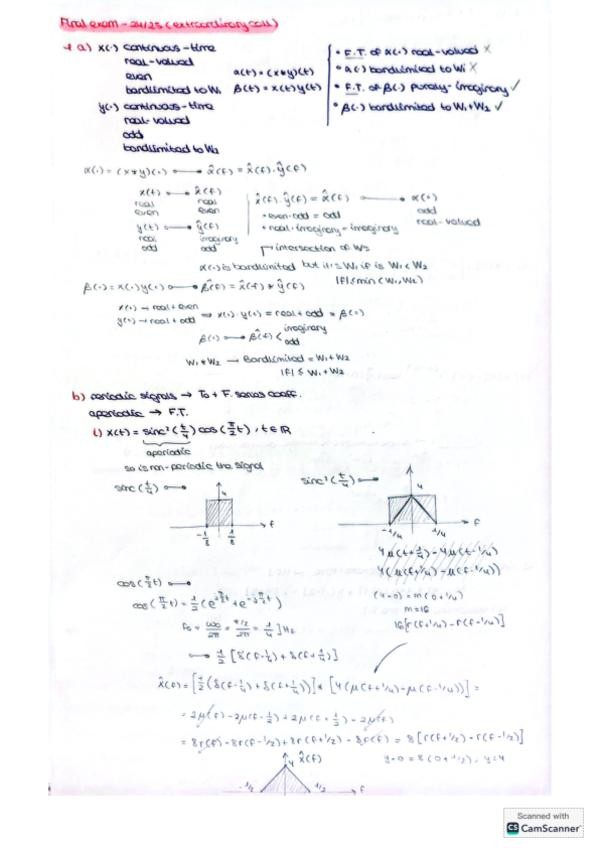 Final exam - 24/25 (extraordinary call)
a) x(·) continuous-time
real-valued
even
bandlimited to W₁
y(·) continuous-time
real-valued
odd
bandlimited to W₂
α(t) = (x*y)(t)
β(t) = x(t) y(t)
• F.T. of α(·) real-valued ✗
• α(·) bandlimited to W₁ ✗
• F.T. of β(·) purely-imaginary ✓
• β(·) bandlimited to W₁+W₂ ✓
α(·) = (x*y)(·) α̂(f) = x̂(f)·ŷ(f)
x(t) x̂(f)
real real
even even
y(t) ŷ(f)
real imaginary
odd odd
x̂(f)·ŷ(f) = α̂(f) α(·)
• even·odd = odd odd
• real·imaginary = imaginary real-valued
intersection of Ws
α(·) is bandlimited but it is W₁ if is W₁ < W₂
|f| ≤ min(W₁,W₂)
β(·) = x(·) y(·) β̂(f) = x̂(f) * ŷ(f)
x(·) → real + even
y(·) → real + odd ⇒ x(·)·y(·) = real + odd = β(·)
β(·) β̂(f) < imaginary
odd
W₁*W₂ → Bandlimited = W₁+W₂
|f| ≤ W₁+W₂
b) periodic signals → T₀ + F. series coeff.
aperiodic → F.T.
i) x(t) = sinc²(t/4) cos(π/2 t), t∈ℝ
aperiodic
so is non-periodic the signal
sinc(t/4)
4
-1/8 1/8 f
sinc²(t/4)
4
-1/4 1/4 f
4μ(f+1/4) - 4μ(f-1/4)
4(μ(f+1/4) - μ(f-1/4))
cos(π/2 t)
cos(π/2 t) = 1/2 (e^{jπ/2 t} + e^{-jπ/2 t})
(4-0) = m(0+1/4)
m=16
16[r(f+1/4) - r(f-1/4)]
f₀ = ω₀/2π = π/2/2π = 1/4 ] Hz
1/2 [δ(f-1/4) + δ(f+1/4)]
x̂(f) = [1/2(δ(f-1/4) + δ(f+1/4))] * [4(μ(f+1/4) - μ(f-1/4))] =
= 2μ(f) - 2μ(f-1/2) + 2μ(f+1/2) - 2μ(f)
= 8r(f) - 8r(f-1/2) + 8r(f+1/2) - 8r(f) = 8[r(f+1/2) - r(f-1/2)]
y-0 = 8(0+1/2), y=4
4 x̂(f)
-1/2 1/2 f
Scanned with
CS CamScanner